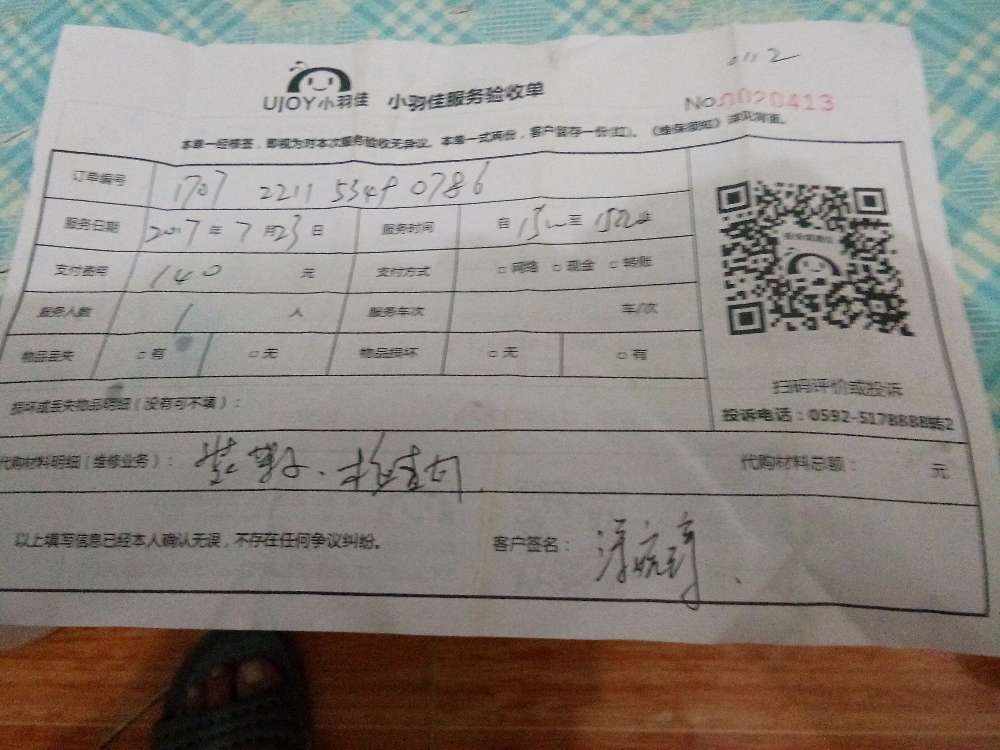 0112
UJOY小羽佳 小羽佳服务验收单
No.0020413
本单一经核签，即视为对本次服务验收无异议。本单一式两份，客户留存一份(红)。《维保须知》详见背面。
订单编号 1707 2211 5349 0786
服务日期 2017 年 7 月 23 日 服务时间 自 至
支付费号 140 元 支付方式 □网络 □现金 □转账
服务人数 1 人 服务车次 车/次
物品丢失 □有 □无 物品损坏 □无 □有
损坏或丢失物品明细（没有可不填）：
扫码评价或投诉
投诉电话：0592-5178888转2
代购材料明细（维修业务）： 代购材料总额： 元
以上填写信息已经本人确认无误，不存在任何争议纠纷。 客户签名：